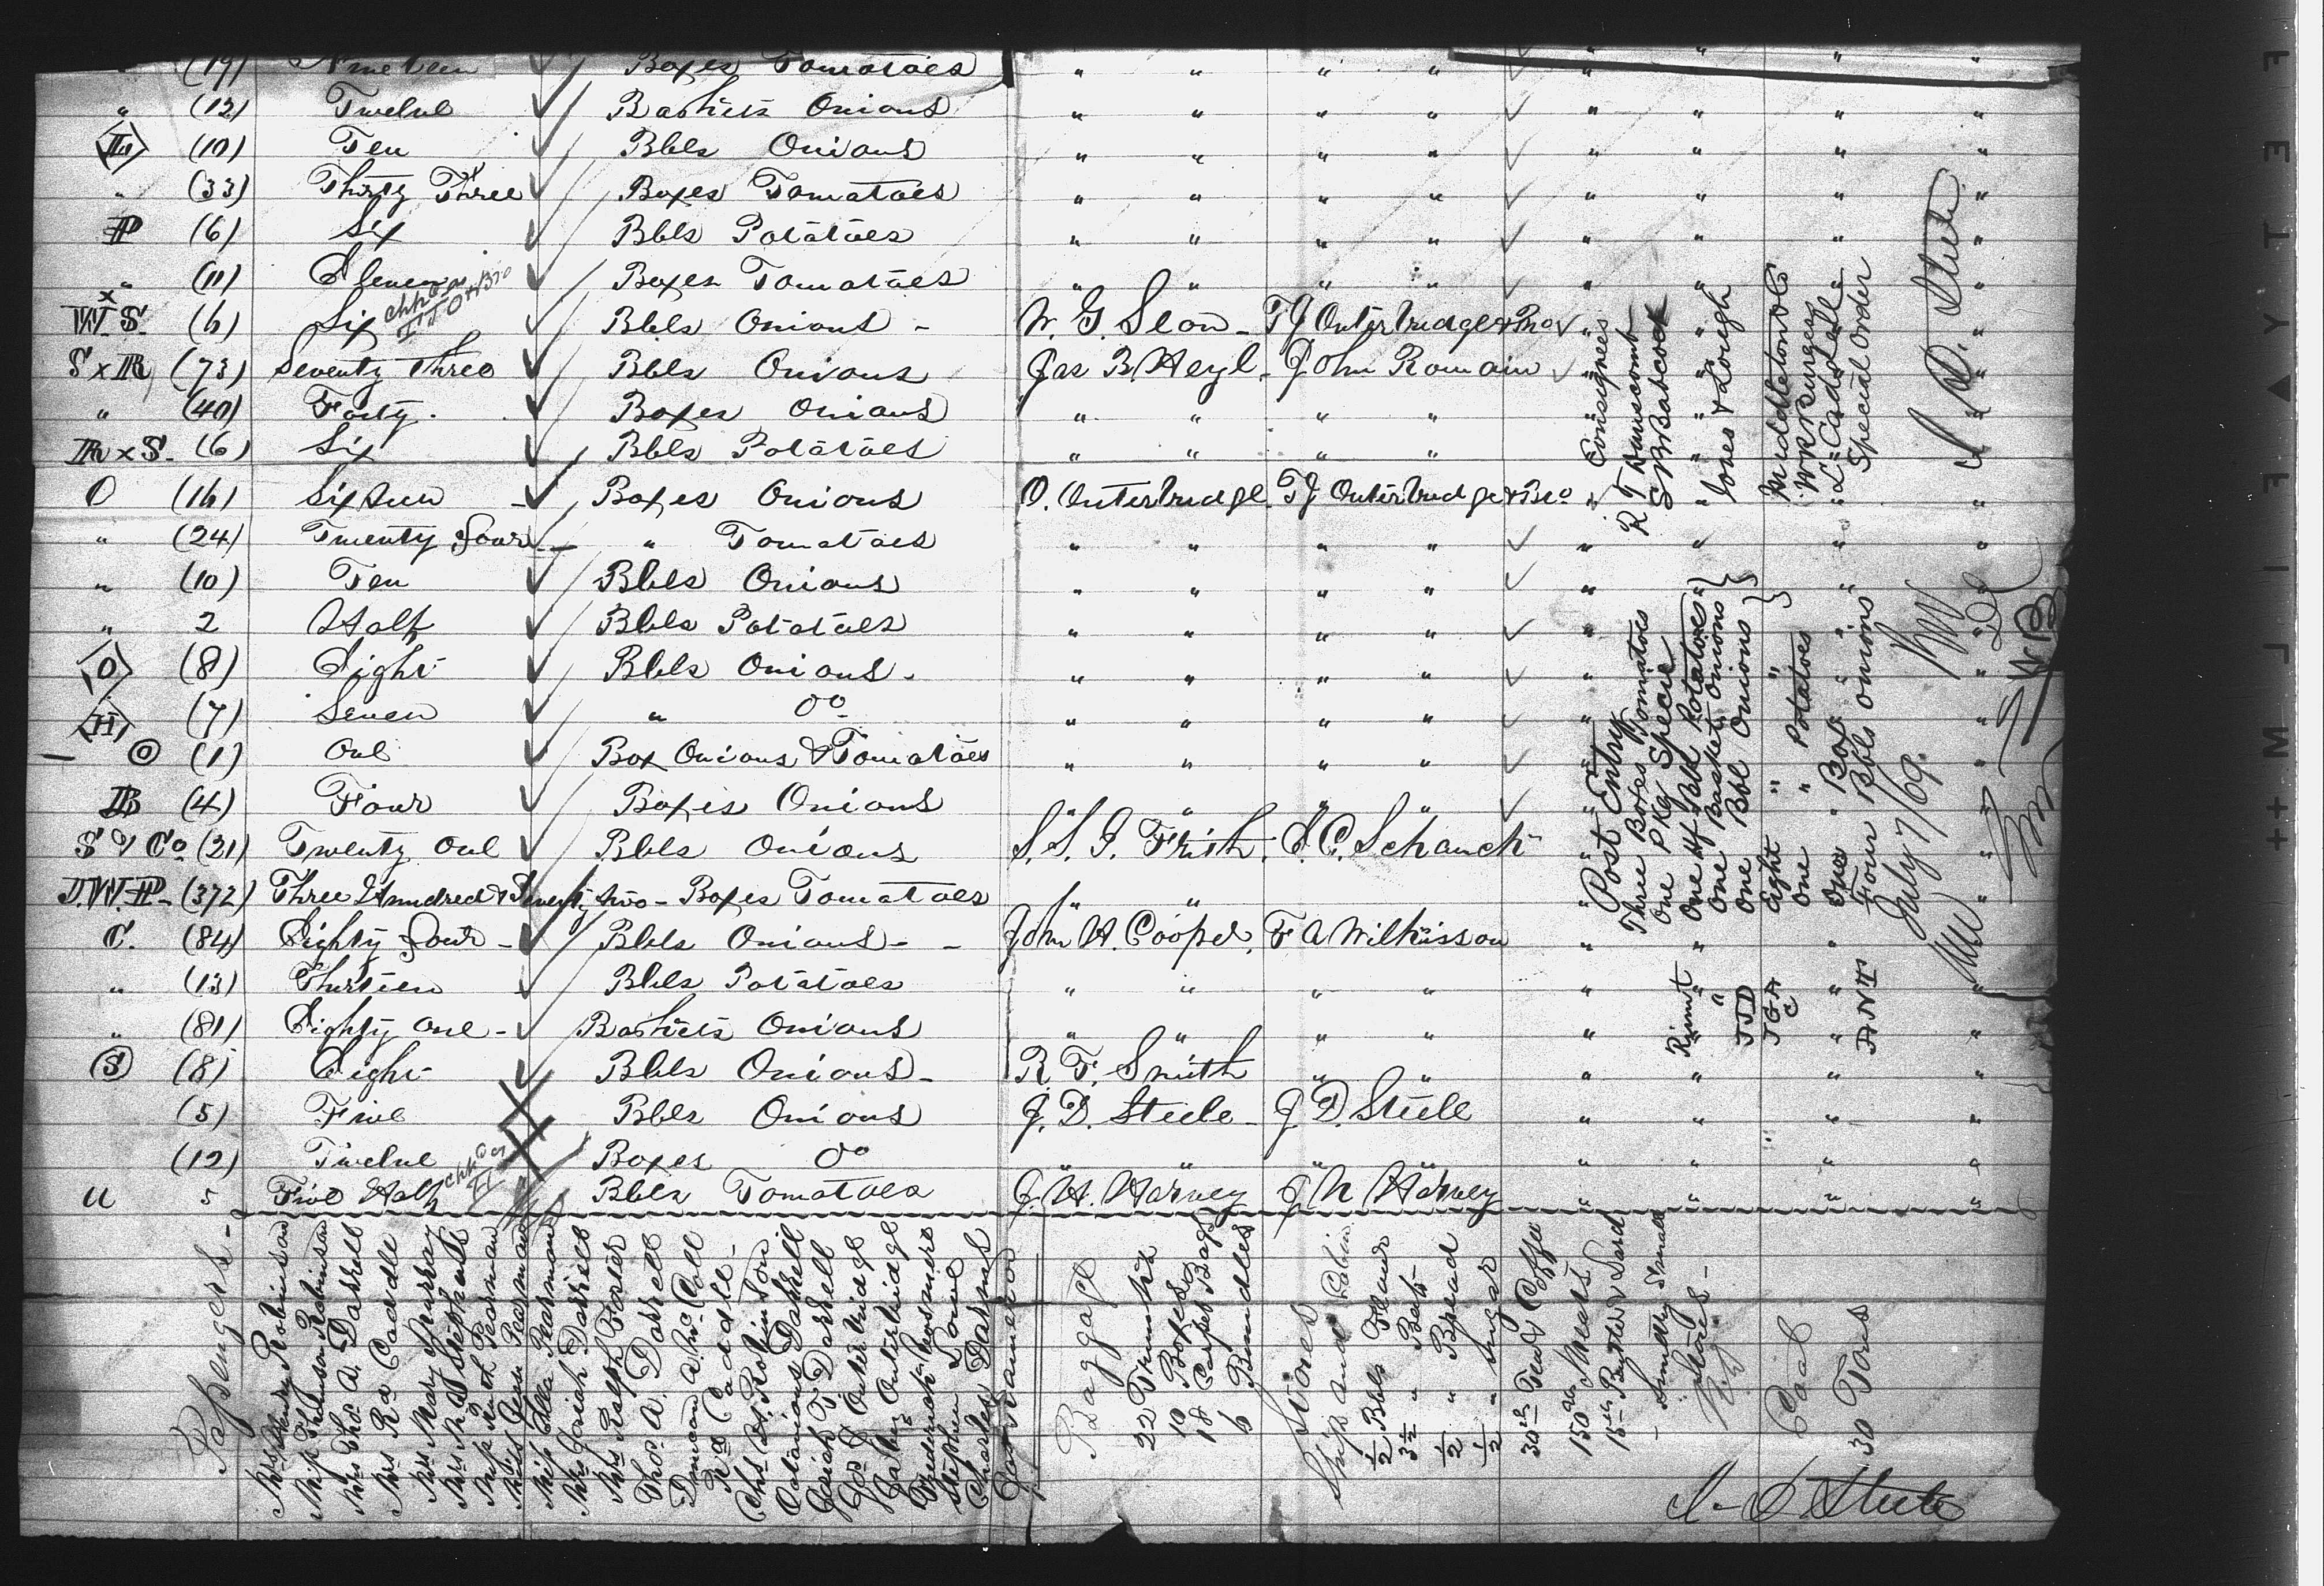 " (19) Nineteen Boxes Tomatoes " " " " " " " "
" (12) Twelve Baskets Onions " " " " " " " "
L (10) Ten Bbls Onions " " " " " " " "
" (33) Thirty Three Boxes Tomatoes " " " " " " " "
P (6) Six Bbls Potatoes " " " " " " " "
" (11) Eleven Boxes Tomatoes " " " " " " " "
W.S. (6) Six Bbls Onions - W. G. Slow - TJ Outerbridge & Bro "
S x R (73) Seventy Three Bbls Onions Jas B Heyl - John Romain "
" (40) Forty Boxes Onions " " " " "
R x S. (6) Six Bbls Potatoes " " " "
O (16) Sixteen Boxes Onions O. Outerbridge TJ Outerbridge & Bro "
" (24) Twenty four " Tomatoes " " " " " " " "
" (10) Ten Bbls Onions " " " " " "
" 2 Half Bbls Potatoes " " " " "
O (8) Eight Bbls Onions. " " " " "
H (7) Seven " Do " " " " "
O (1) One Box Onions & Tomatoes " " " "
B (4) Four Boxes Onions " " " "
S & Co (21) Twenty One Bbls Onions S. S. J. Frith. S. C. Schanck
J.W.P - (372) Three Hundred & Seventy two - Boxes Tomatoes " "
C. (84) Eighty Four - Bbls Onions - - John H. Cooper. F A Wilkisson "
" (13) Thirteen Bbls Potatoes " " " " "
" (81) Eighty One - Baskets Onions " " " " "
S (8) Eight Bbls Onions - R. F. Smith " " " "
(5) Five Bbls Onions J. D. Steele - J. D. Steele " "
(12) Twelve Boxes Do " " " " " "
u 5 Five Half Bbls Tomatoes J. H. Harvey J H Harvey " "
Passengers -
Mrs Henry Robinson
Miss Robinson
Mrs Thos A. Darrell
Mrs Rd Caddle
Mrs Mary Murray
Mrs Stephens
Miss Ruth Pearman
Miss Pearman
Miss Ella Pearman
Mrs Josiah Darrell
Mrs Ralph Foster
Thos A. Darrell
Duncan A. McCall
Rd Caddle -
Chs B. Robinson
Octavious Darrell
Josiah T Darrell
Jos J Outerbridge
Outerbridge
Frederick
Stephen Lowe
Charles Darms
Baggage
22 Trunks
10 Boxes
18 Carpet Bags
6 Bundles
Stores
Ships and Cabin
1/2 Bbls Flour
3 1/2 " Beef -
1/2 " Bread
1/2 " Sugar
30 lbs Tea & Coffee
150 lbs Meats
15 lbs Butter & Lard
- Sundry Small
Stores -
Coal
30 Tons
J. D. Steele
Post Entry
Consignees
Three Boxes Tomatoes R T Dunscomb
One Pkg Specie S B Babcock
One Hf Bbl Potatoes "
" One Basket Onions Jones & Lough
JJD One Bbl Onions
JGA Eight " " Middleton & Co
C One " Potatoes W R Burgess
One Box L. Cadwell
ANI Four Bbls Onions Special Order
July 7/69.
J. D. Steele